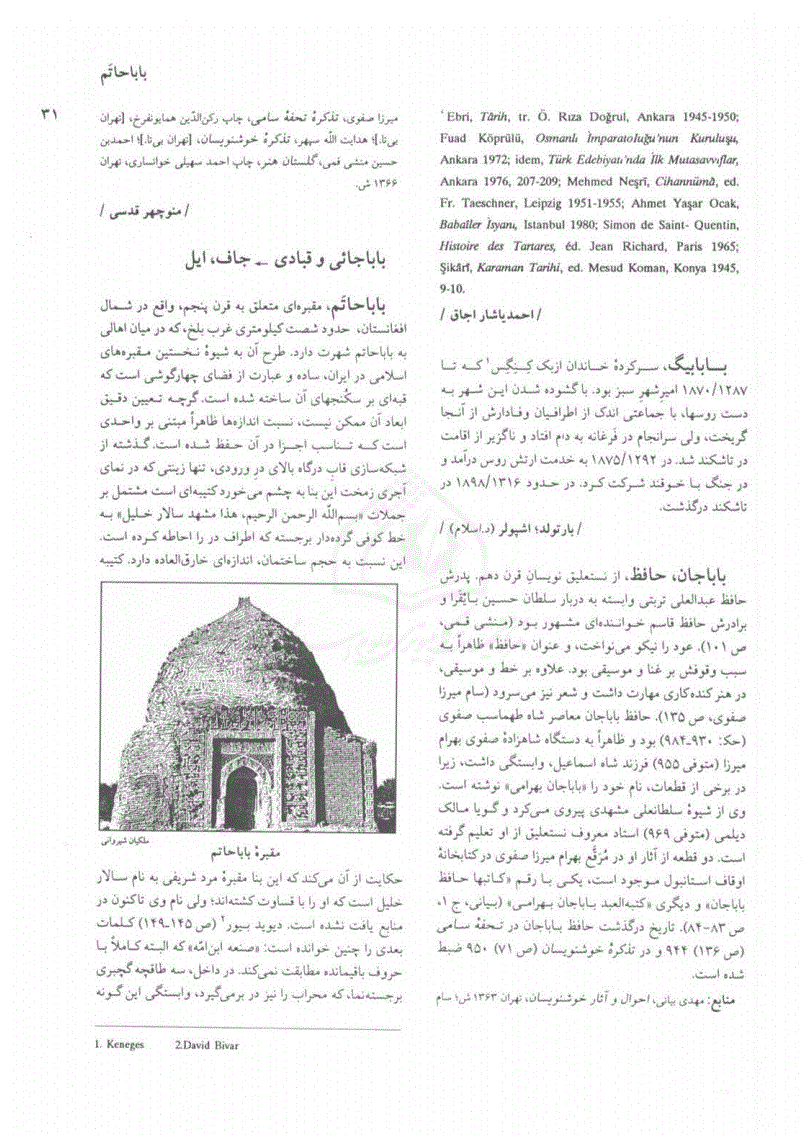 باباحاتَم
۳۱
ʿEbri, Târih, tr. Ö. Rıza Doğrul, Ankara 1945-1950;
Fuad Köprülü, Osmanlı İmparatoluğu'nun Kuruluşu,
Ankara 1972; idem, Türk Edebiyatı'nda İlk Mutasavvıflar,
Ankara 1976, 207-209; Mehmed Neşrī, Cihannümā, ed.
Fr. Taeschner, Leipzig 1951-1955; Ahmet Yaşar Ocak,
Babaîler İsyanı, Istanbul 1980; Simon de Saint- Quentin,
Histoire des Tartares, éd. Jean Richard, Paris 1965;
Şikārī, Karaman Tarihi, ed. Mesud Koman, Konya 1945,
9-10.
/ احمدیاشار اجاق /
بــابابیگ، ســرکردهٔ خــاندان ازبک کِـیْنِگِس۱ کـه تــا
۱۸۷۰/۱۲۸۷ امیرشهرِ سبز بود. با گشوده شدن ایـن شـهر بـه
دست روسها، با جماعتی اندک از اطرافیان وفـادارش از آنـجا
گریخت، ولی سرانجام در فَرغانه به دام افتاد و ناگزیر از اقامت
در تاشکند شد. در ۱۸۷۵/۱۲۹۲ به خدمت ارتش روس درآمد و
در جنگ بـا خـوقند شـرکت کـرد. در حـدود ۱۸۹۸/۱۳۱۶ در
تاشکند درگذشت.
/ بارتولد؛ اشپولر (د.اسلام) /
باباجان، حافظ، از نستعلیق نویسانِ قرن دهم. پدرش
حافظ عبدالعلی تربتی وابسته به دربار سلطان حسـین بـایْقَرا و
برادرش حافظ قاسم خـوانـنده‌ای مشـهور بـود (مـنشی قـمی،
ص ۱۰۱). عود را نیکو می‌نواخت، و عنوان «حافظ» ظاهراً بـه
سبب وقوفش بر غنا و موسیقی بود. علاوه بر خط و موسیقی،
در هنر کنده‌کاری مهارت داشت و شعر نیز می‌سرود (سام میرزا
صفوی، ص ۱۳۵). حافظ باباجان معاصر شاه طهماسب صفوی
(حکـ : ۹۳۰ـ۹۸۴) بود و ظاهراً به دستگاه شاهزادهٔ صفوی بهرام
میرزا (متوفی ۹۵۵) فرزند شاه اسماعیل، وابستگی داشت، زیرا
در برخی از قطعات، نام خود را «باباجان بهرامی» نوشته است.
وی از شیوهٔ سلطانعلی مشهدی پیروی مـی‌کرد و گـویا مـالک
دیلمی (متوفی ۹۶۹) استاد معروف نستعلیق از او تعلیم گرفته
است. دو قطعه از آثار او در مُرَقَّع بهرام میرزا صفوی در کتابخانهٔ
اوقاف استانبول مـوجود است، یکـی بـا رقـم «کـاتبها حـافظ
باباجان» و دیگری «کتبه‌العبد بـاباجان بـهرامـی» (بـیانی، ج ۱،
ص ۸۳-۸۴). تاریخ درگذشت حافظ بـاباجان در تـحفهٔ سـامی
(ص ۱۳۶) ۹۴۴ و در تذکرهٔ خوشنویسان (ص ۷۱) ۹۵۰ ضبط
شده است.
منابع: مهدی بیانی، احوال و آثار خوشنویسان، تهران ۱۳۶۳ ش؛ سام
میرزا صفوی، تذکرهٔ تحفهٔ سامی، چاپ رکن‌الدّین همایونفرخ، [تهران
بی‌تا.]؛ هدایت اللّه سپهر، تذکرهٔ خوشنویسان، [تهران بی‌تا.]؛ احمدبن
حسین منشی قمی، گلستان هنر، چاپ احمد سهیلی خوانساری، تهران
۱۳۶۶ ش.
/ منوچهر قدسی /
باباجائی و قبادی ← جاف، ایل
باباحاتَم، مقبره‌ای متعلق به قرن پنجم، واقع در شـمال
افغانستان، حدود شصت کیلومتری غرب بلخ،که در میان اهالی
به باباحاتم شهرت دارد. طرح آن به شیوهٔ نـخستین مـقبره‌های
اسلامی در ایران، ساده و عبارت از فضای چهارگوشی است که
قبه‌ای بر سکُنجهای آن ساخته شده است. گرچـه تـعیین دقـیق
ابعاد آن ممکن نیست، نسبت اندازه‌ها ظاهراً مبتنی بر واحـدی
است کـه تـناسب اجـزا در آن حـفظ شـده است. گـذشته از
شبکه‌سازی قابِ درگاه بالای درِ ورودی، تنها زینتی که در نمای
آجری زمخت این بنا به چشم می‌خورد کتیبه‌ای است مشتمل بر
جملات «بسم‌اللّه الرحمن الرحیم، هذا مشهد سالار خـلیل» بـه
خط کوفی گره‌دار برجسته که اطراف در را احاطه کـرده است.
این نسبت به حجم ساختمان، اندازه‌ای خارق‌العاده دارد. کتیبه
ملکیان شیروانی
مقبرهٔ باباحاتم
حکایت از آن می‌کند که این بنا مقبرهٔ مرد شریفی به نام سـالار
خلیل است که او را با قساوت کشته‌اند؛ ولی نام وی تاکنون در
منابع یافت نشده است. دیوید بـیور۲ (ص ۱۴۵ـ۱۴۹) کـلمات
بعدی را چنین خوانده است: «صنعه ابن‌امّه» که البـته کـاملاً بـا
حروف باقیمانده مطابقت نمی‌کند. در داخل، سه طاقچه گچبری
برجسته‌نما، که محراب را نیز در برمی‌گیرد، وابستگی این گـونه
1. Keneges 2.David Bivar